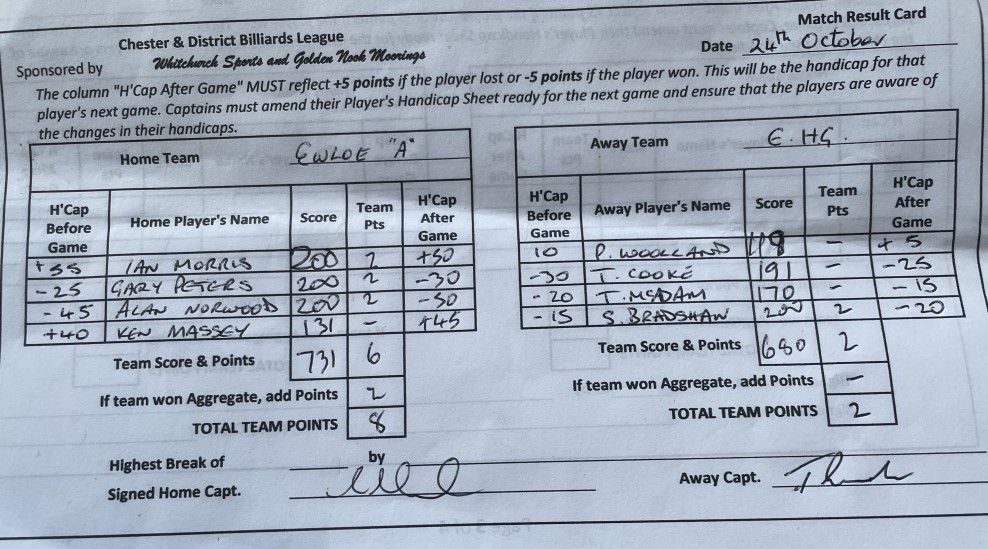 Match Result Card
Chester & District Billiards League
Date 24th October
Sponsored by Whitchurch Sports and Golden Nook Moorings
The column "H'Cap After Game" MUST reflect +5 points if the player lost or -5 points if the player won. This will be the handicap for that
player's next game. Captains must amend their Player's Handicap Sheet ready for the next game and ensure that the players are aware of
the changes in their handicaps.
Home Team EWLOE "A"
H'Cap Before Game Home Player's Name Score Team Pts H'Cap After Game
+55 IAN MORRIS 200 2 +50
-25 GARY PETERS 200 2 -30
-45 ALAN NORWOOD 200 2 -50
+40 KEN MASSEY 131 - +45
Team Score & Points 731 6
If team won Aggregate, add Points 2
TOTAL TEAM POINTS 8
Away Team E.HG.
H'Cap Before Game Away Player's Name Score Team Pts H'Cap After Game
10 P. WOOLLAND 119 - +5
-30 T. COOKE 191 - -25
-20 T. MCADAM 170 - -15
-15 S. BRADSHAW 200 2 -20
Team Score & Points 680 2
If team won Aggregate, add Points -
TOTAL TEAM POINTS 2
Highest Break of by
Signed Home Capt.
Away Capt.